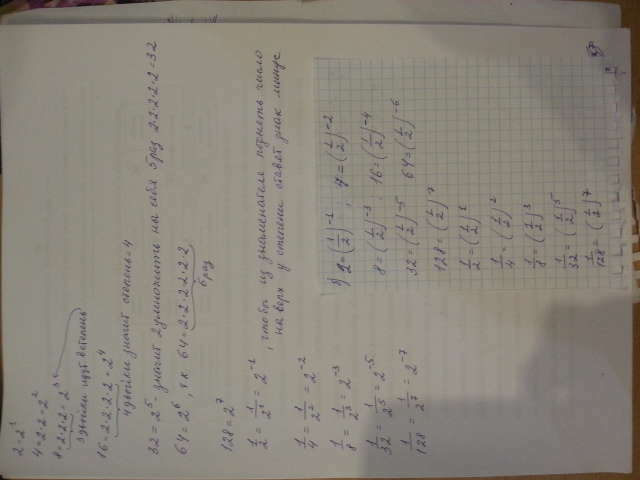 2 = 2¹
4 = 2·2 = 2²
8 = 2·2·2 = 2³
3 двойки идут в степень
16 = 2·2·2·2 = 2⁴
4 двойки значит степень = 4
32 = 2⁵ - значит 2 умножить на себя 5 раз 2·2·2·2·2 = 32
64 = 2⁶, т.к 64 = 2·2·2·2·2·2
6 раз
128 = 2⁷
1/2 = 1/2¹ = 2⁻¹, чтобы из знаменателя поднять число
на верх у степени ставят знак минус
1/4 = 1/2² = 2⁻²
1/8 = 1/2³ = 2⁻³
1/32 = 1/2⁵ = 2⁻⁵
1/128 = 1/2⁷ = 2⁻⁷
2 = (1/2)⁻¹, 4 = (1/2)⁻²
8 = (1/2)⁻³, 16 = (1/2)⁻⁴
32 = (1/2)⁻⁵ 64 = (1/2)⁻⁶
128 = (1/2)⁻⁷
1/2 = (1/2)¹
1/4 = (1/2)²
1/8 = (1/2)³
1/32 = (1/2)⁵
1/128 = (1/2)⁷